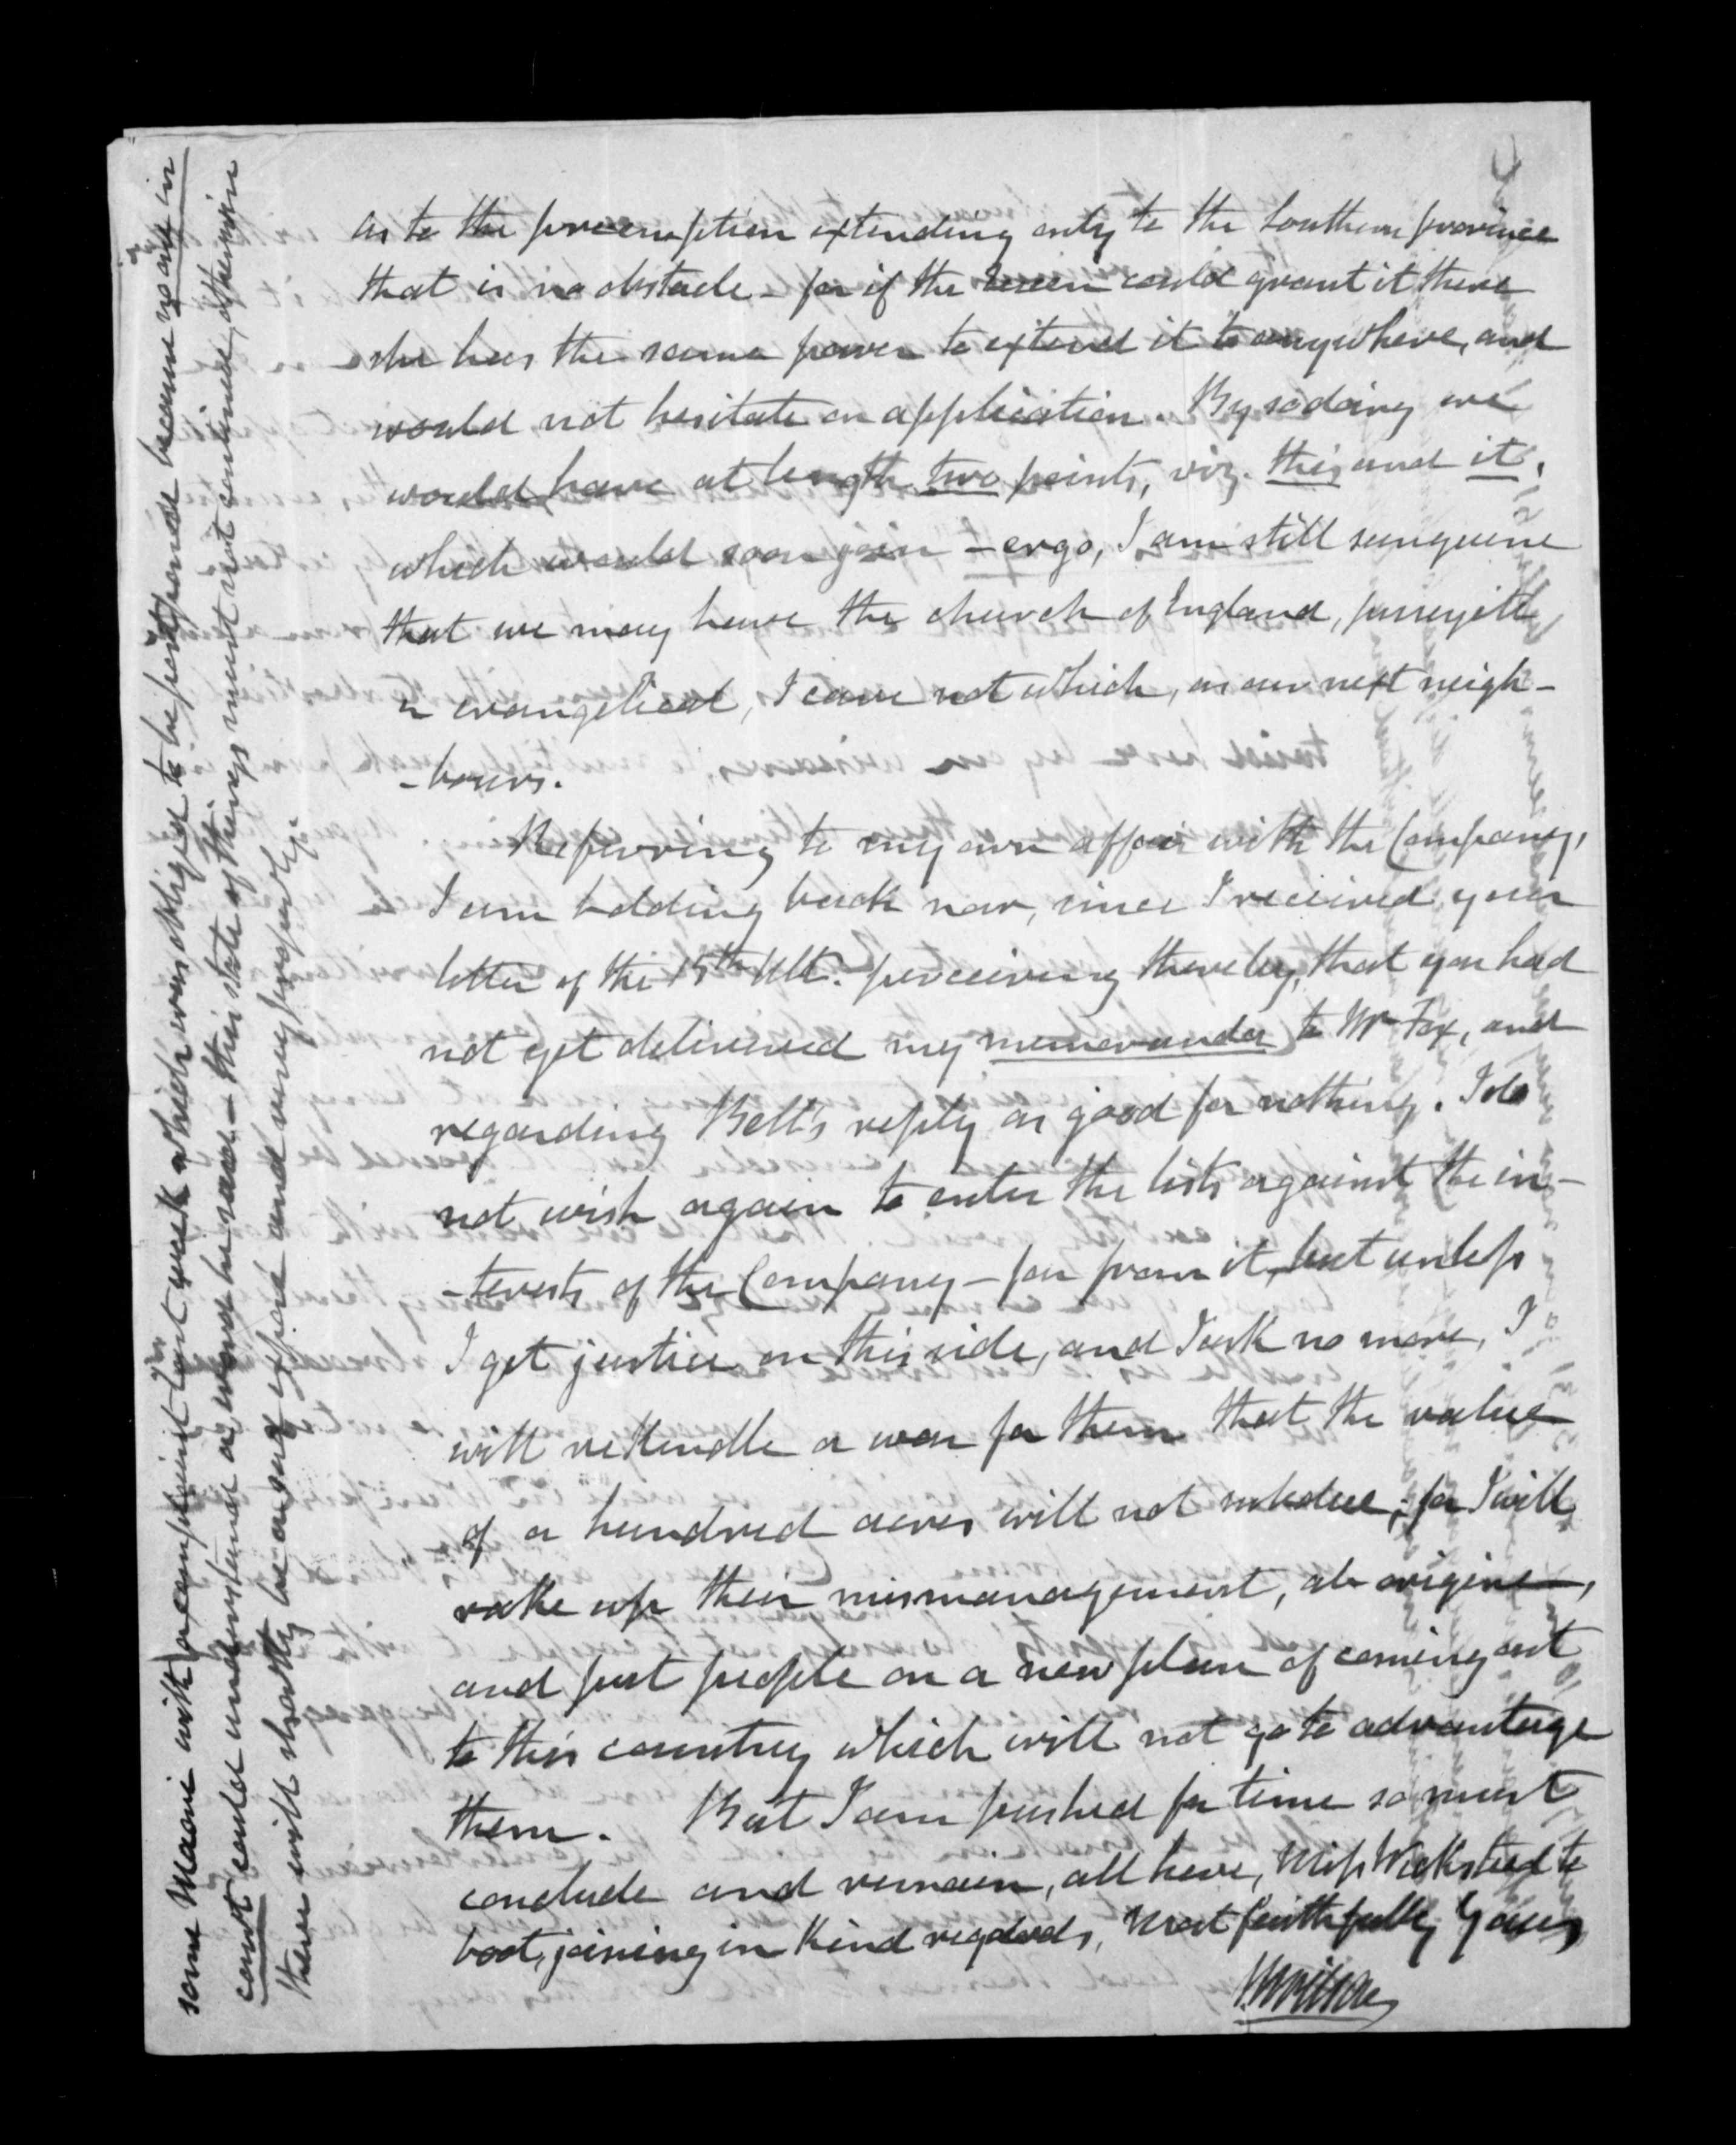 As to the preemption extending only to the Southern province
that is no obstacle - for if the Queen could grant it there
she has the same power to extend it to anywhere, and
would not hesitate on application. By so doing we
would have at length two points, viz. this and it,
which would soon join - ergo, I am still sanguine
that we may have the church of England, puseyite
or evangelical, I care not which, as our next neigh-
-bours.
Referring to my own affair with the Company,
I am holding back now, since I received your
letter of the 15th Ult. perceiving thereby, that you had
not yet delivered my memoranda to Mr Fox, and
regarding Bell's reply as good for nothing. I do
not wish again to enter the lists against the in-
-terests of the Company - far from it, but unless
I get justice on this side, and I ask no more, I
will rekindle a war for them that the value
of a hundred acres will not subdue; for I will
rake up their mismanagement, ab origine,
and put people on a new plan of coming out
to this country which will not go to advantage
them. But I am pushed for time so must
conclude and remain, all here, Miss Wicksteed to
boot, joining in kind regards, Most faithfully Yours
some Maori with a complaint last week which was obliged to be postponed because no one in
court could understand a word he said - this state of things must not continue, otherwise
there will shortly be a sad exposé and very properly.